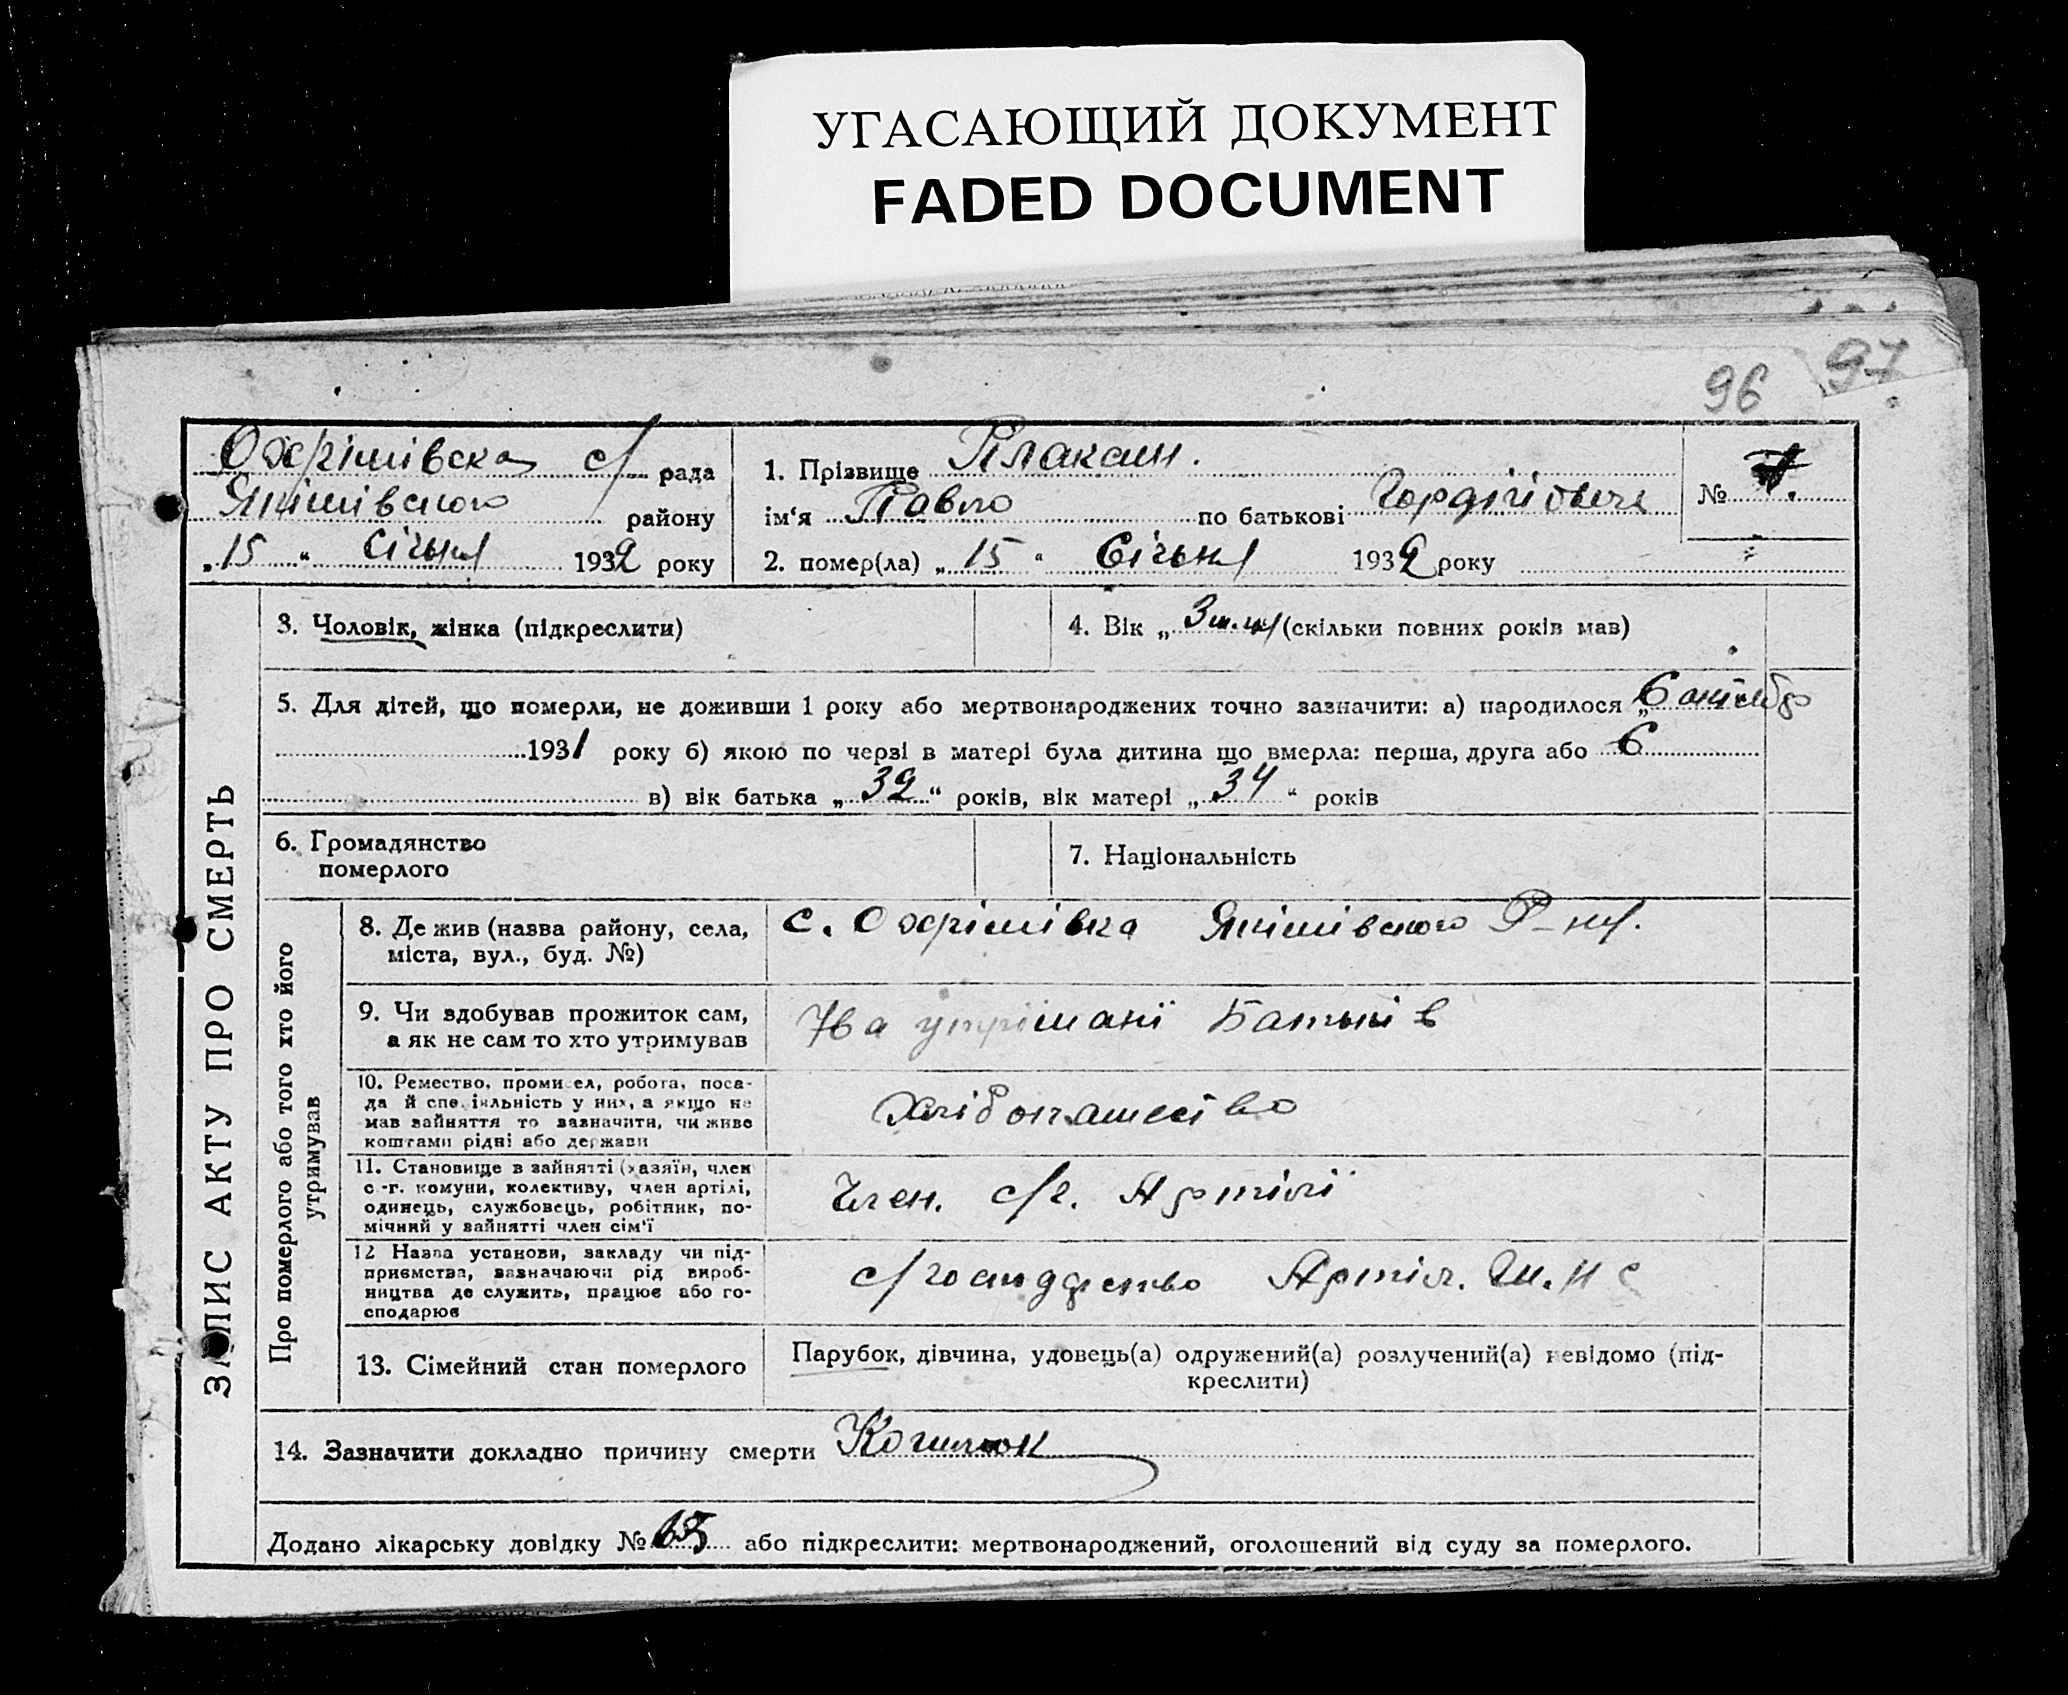 УГАСАЮЩИЙ ДОКУМЕНТ
FADED DOCUMENT
96 97
Охрімівська с/ рада
Якимівського району
„15“ Січня 1932 року
1. Прізвище Плаксин.
ім‘я Павло по батькові Гордійович
2. помер(ла) „15“ Січня 1932 року
№
ЗАПИС АКТУ ПРО СМЕРТЬ
3. Чоловік, жінка (підкреслити)
4. Вік „ 3 (скільки повних років мав)
5. Для дітей, що померли, не доживши 1 року або мертвонароджених точно зазначити: а) народилося „6 октябр
1931 року б) якою по черзі в матері була дитина що вмерла: перша, друга або 6
в) вік батька „39“ років, вік матері „34“ років
6. Громадянство
померлого
7. Національність
Про померлого або того хто його
утримував
8. Де жив (назва району, села,
міста, вул., буд. №)
с. Охрімівка Якімівского Р-ну.
9. Чи здобував прожиток сам,
а як не сам то хто утримував
На утріманї Батьків
10. Ремество, промисел, робота, поса-
да й спеціяльність у них, а якщо не
мав зайняття то зазначити, чи живе
коштами рідні або держави
Хлібопашество
11. Становище в зайнятті (хазяїн, член
с.-г. комуни, колективу, член артілі,
одинець, службовець, робітник, по-
мічний у зайнятті член сім'ї
Член. с/г. Артілї
12 Назва установи, закладу чи під-
приємства, зазначаючи рід вироб-
ництва де служить, працює або го-
сподарює
с/господарство Артіл.
13. Сімейний стан померлого
Парубок, дівчина, удовець(а) одружений(а) розлучений(а) невідомо (під-
креслити)
14. Зазначити докладно причину смерти Кошлюк
Додано лікарську довідку № або підкреслити: мертвонароджений, оголошений від суду за померлого.